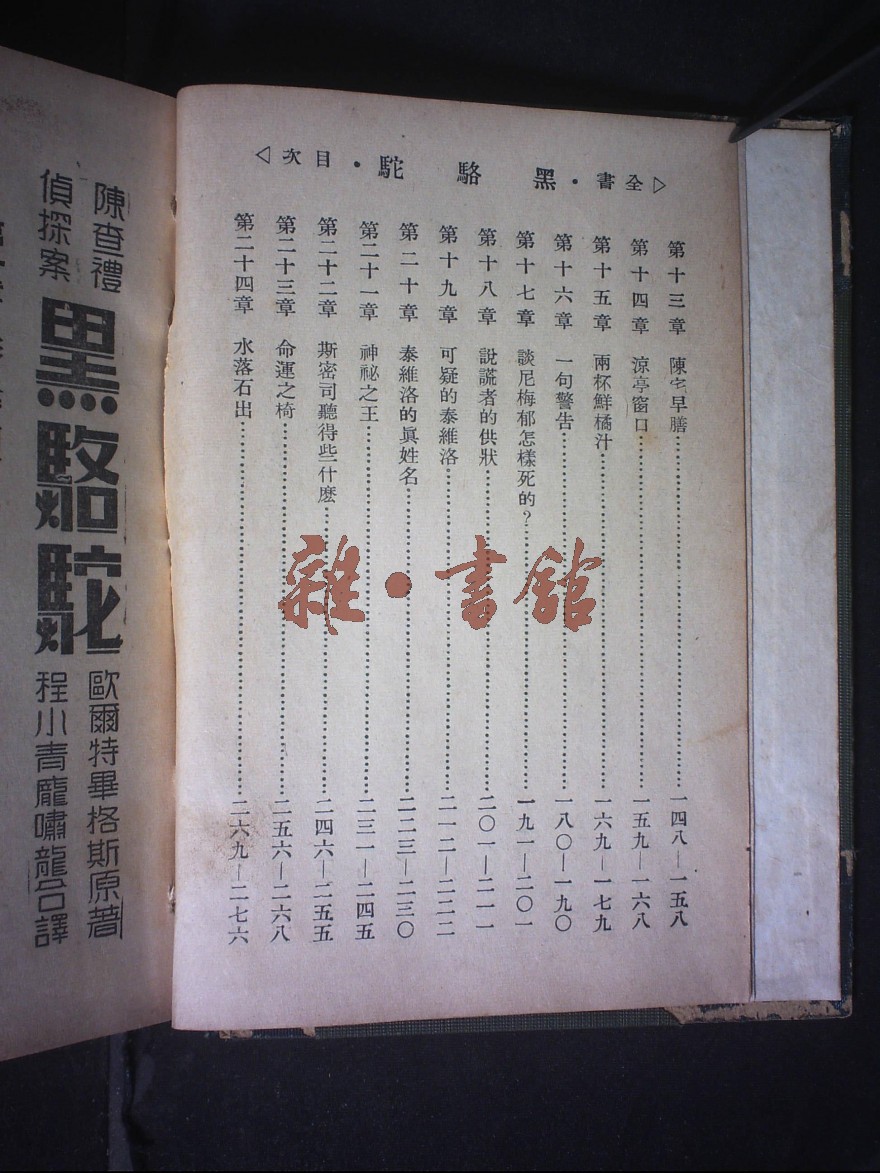 ▷全書·黑駱駝·目次◁
第十三章　陳宅早膳⋯⋯一四八—一五八
第十四章　涼亭窗口⋯⋯一五九—一六八
第十五章　兩杯鮮橘汁⋯⋯一六九—一七九
第十六章　一句警告⋯⋯一八〇—一九〇
第十七章　談尼梅郁怎樣死的？⋯⋯一九一—二〇一
第十八章　說謊者的供狀⋯⋯二〇一—二一一
第十九章　可疑的泰維洛⋯⋯二一二—二二二
第二十章　泰維洛的眞姓名⋯⋯二二三—二三〇
第二十一章　神祕之王⋯⋯二三一—二四五
第二十二章　斯密司聽得些什麽⋯⋯二四六—二五五
第二十三章　命運之椅⋯⋯二五六—二六八
第二十四章　水落石出⋯⋯二六九—二七六
陳查禮
偵探案
黑駱駝
歐爾特畢格斯原著
程小青龐嘯龍合譯
雜·書舘